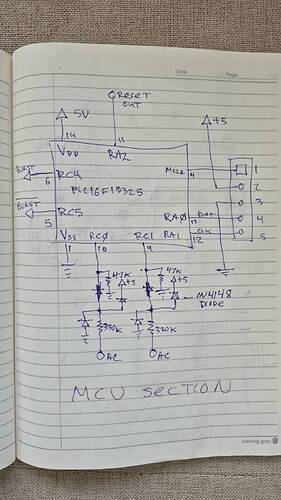 Date Page
RESET
OUT
5V
+5
14
11
VDD
RA2
MCLR
4
1
BURST
RC4
6
2
PIC16F15325
3
BURST
RC5
RA0
DAT
13
4
5
RA1
CLK
12
5
VSS
RC0
RC1
1
10
9
47K
47K
+5
+5
1N4148
DIODE
330K
330K
AC
AC
MCU SECTION
morning glory